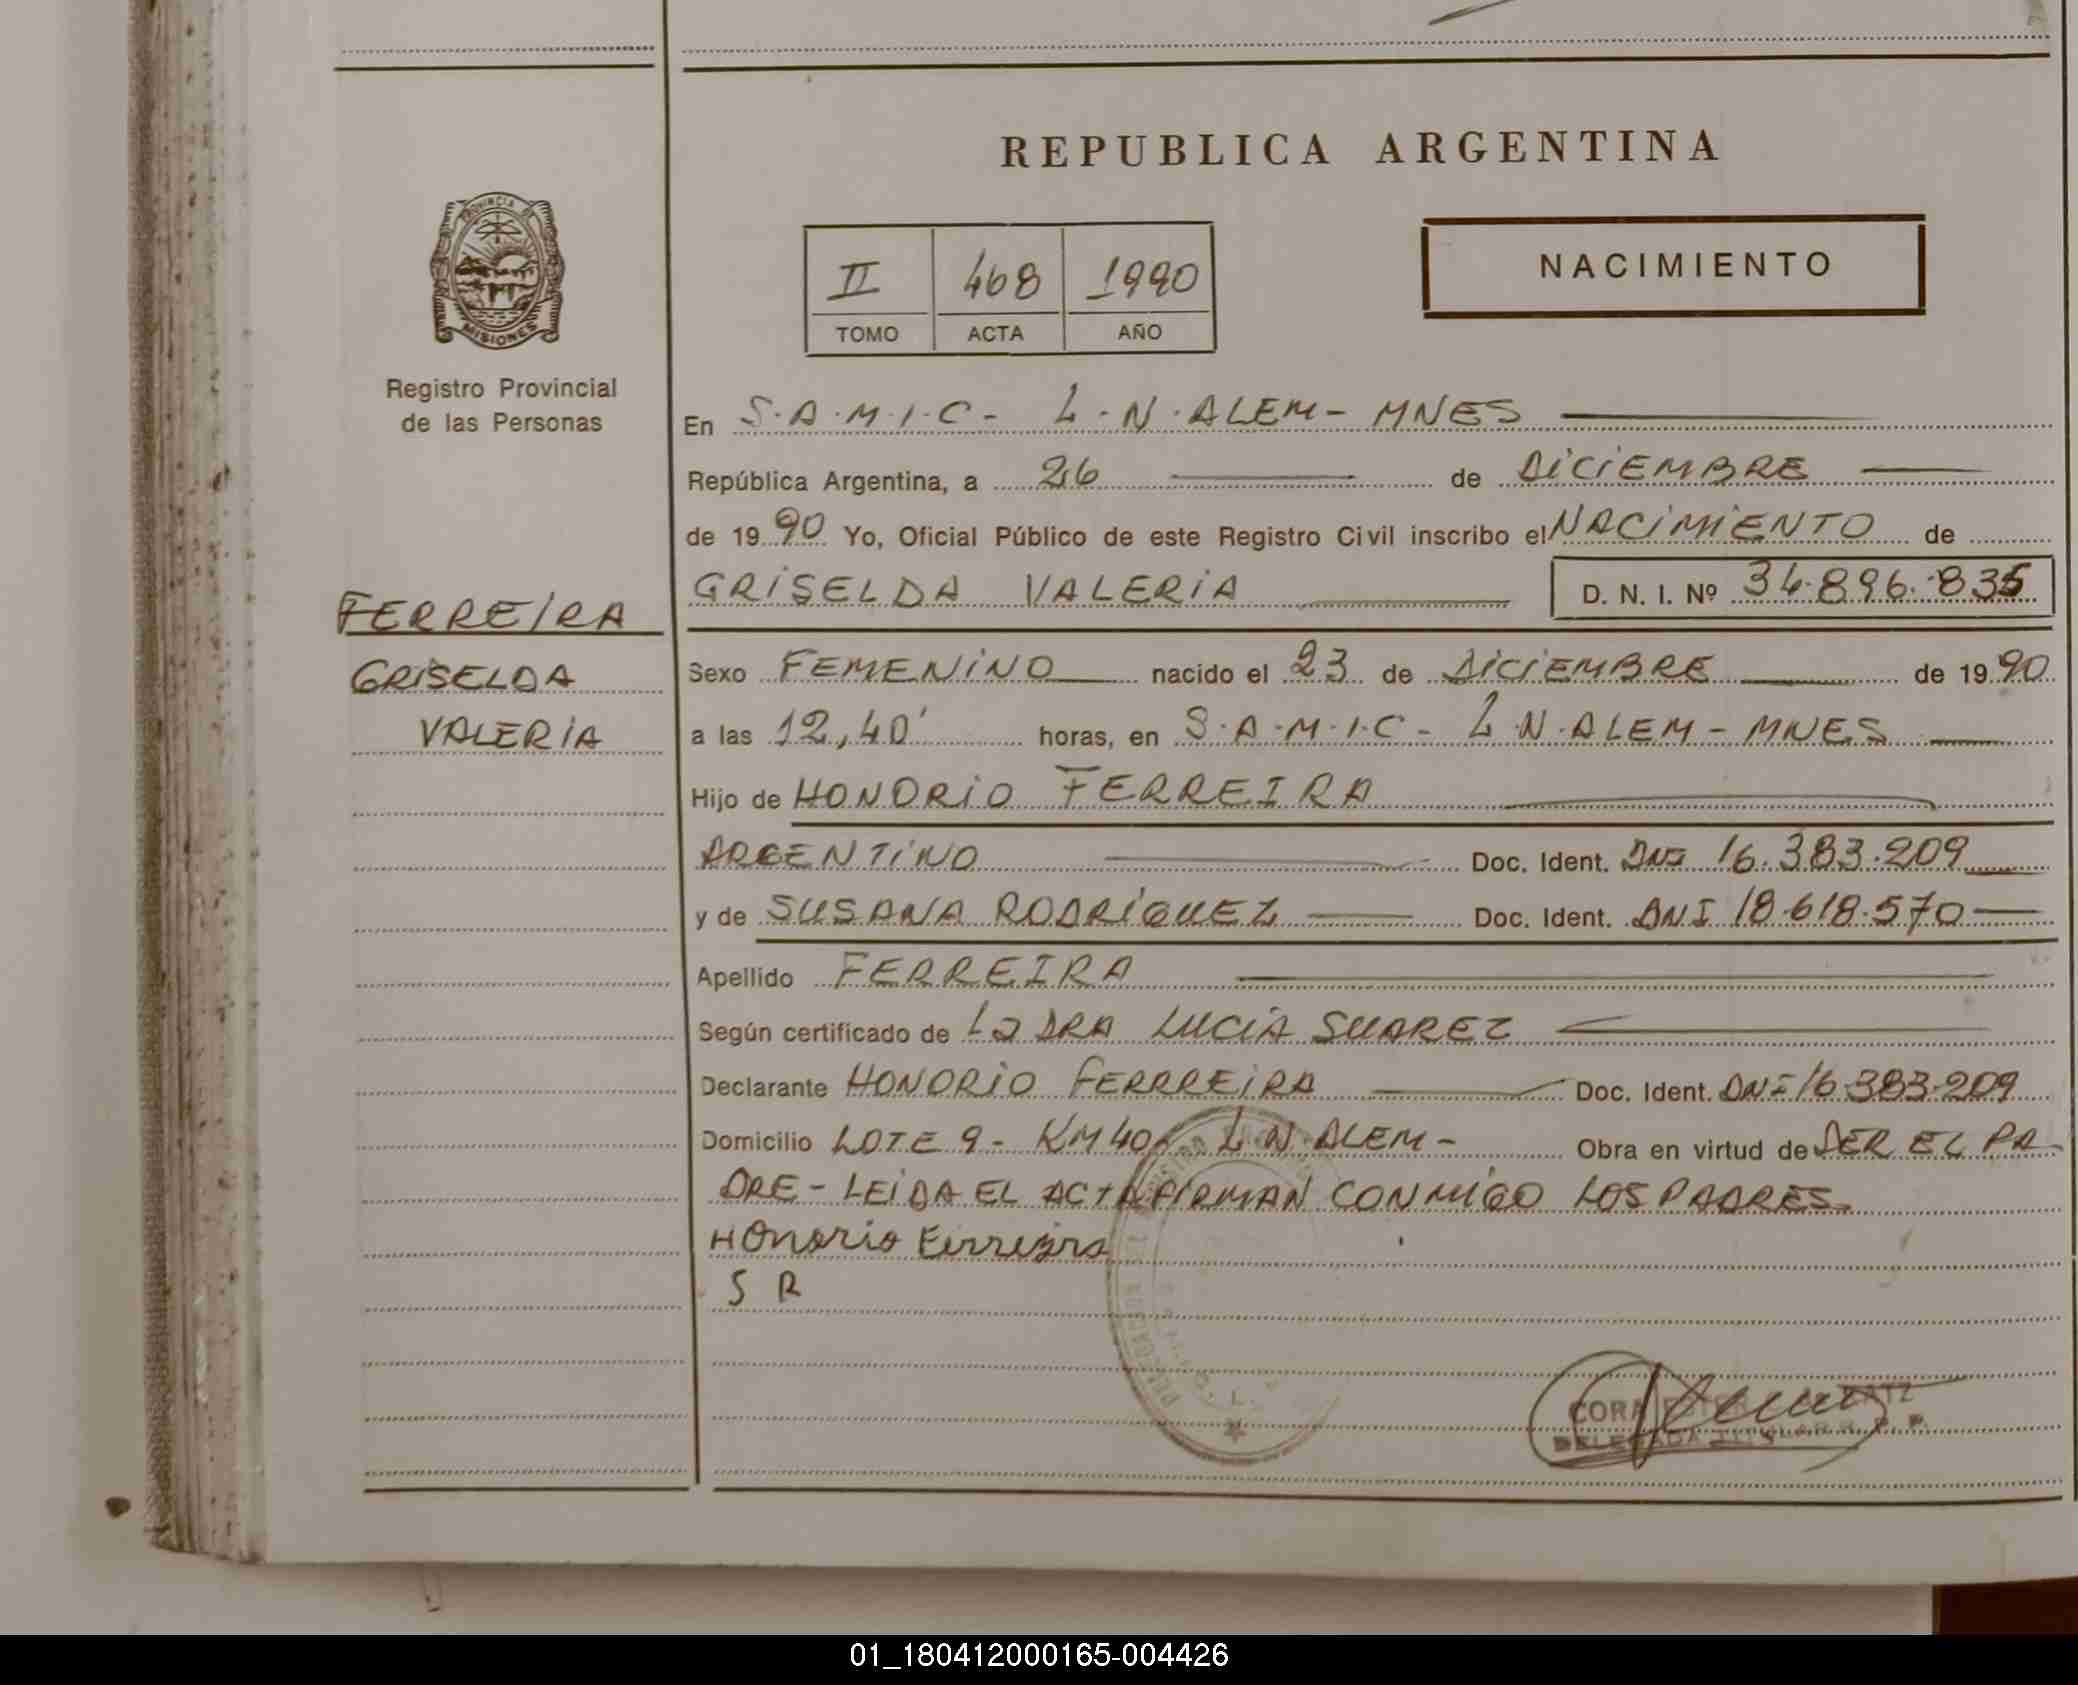 REPUBLICA ARGENTINA
PROVINCIA DE
MISIONES
Registro Provincial
de las Personas
II 468 1990
TOMO ACTA AÑO
NACIMIENTO
En S.A.M.I.C- L.N.ALEM- MNES
República Argentina, a 26 de DICIEMBRE
de 1990 Yo, Oficial Público de este Registro Civil inscribo el NACIMIENTO de
GRISELDA VALERIA D. N. I. Nº 34.896.835
FERREIRA
GRISELDA
VALERIA
Sexo FEMENINO nacido el 23 de DICIEMBRE de 1990
a las 12,40' horas, en S.A.M.I.C- L.N.ALEM- MNES
Hijo de HONORIO FERREIRA
ARGENTINO Doc. Ident. DNI 16.383.209
y de SUSANA RODRÍGUEZ Doc. Ident. DNI 18.618.570
Apellido FERREIRA
Según certificado de La DRA LUCIA SUAREZ
Declarante HONORIO FERRREIRA Doc. Ident. DNI 16.383.209
Domicilio LOTE 9- KM 40- L.N.ALEM- Obra en virtud de SER EL PA
DRE- LEIDA EL ACTA FIRMAN CONMIGO LOS PADRES
HOnorio Ferreira
S R
CORA
DELEGADA TITULAR R. P. P.
01_180412000165-004426